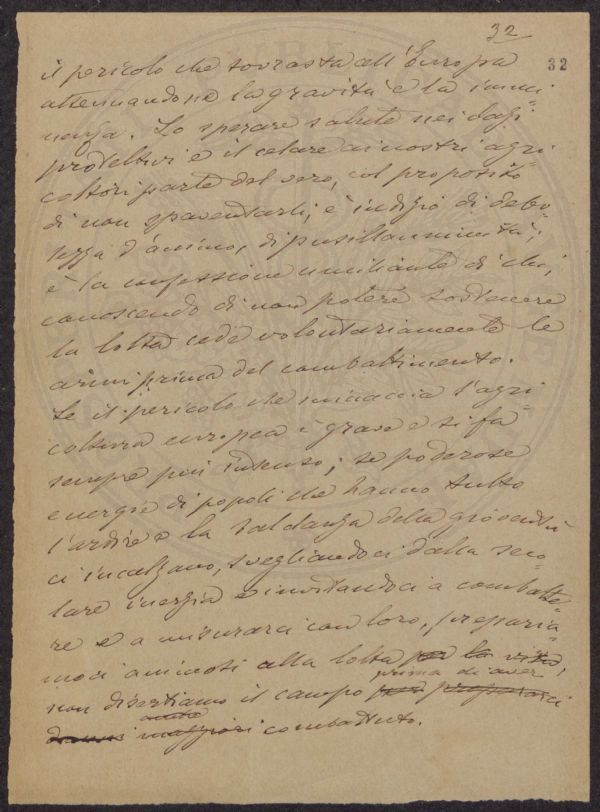 32
32
il pericolo che sovrasta all'Europa
attenuandone la gravità e la immi-
nenza. Lo sperare salute nei dazi
protettivi e il celare ai nostri agri-
coltori parte del vero, col proposito
di non spaventarli, è indizio di debo-
lezza d'animo, di pusillanimità;
è la confessione umiliante di chi,
conoscendo di non potere sostenere
la lotta cede volontariamente le
armi prima del combattimento.
Se il pericolo che minaccia l'agri-
coltura europea è grave e si fa
sempre più intenso; se poderose
energie di popoli che hanno tutto
l'ardire e la baldanza della gioventù
ci incalzano, svegliandoci dalla seco-
lare inerzia e invitandoci a combatte-
re e a misurarci con loro, preparia-
moci animosi alla lotta per la vita,
prima di aver
non disertiamo il campo per prepararci
danni maggiori combattuto.